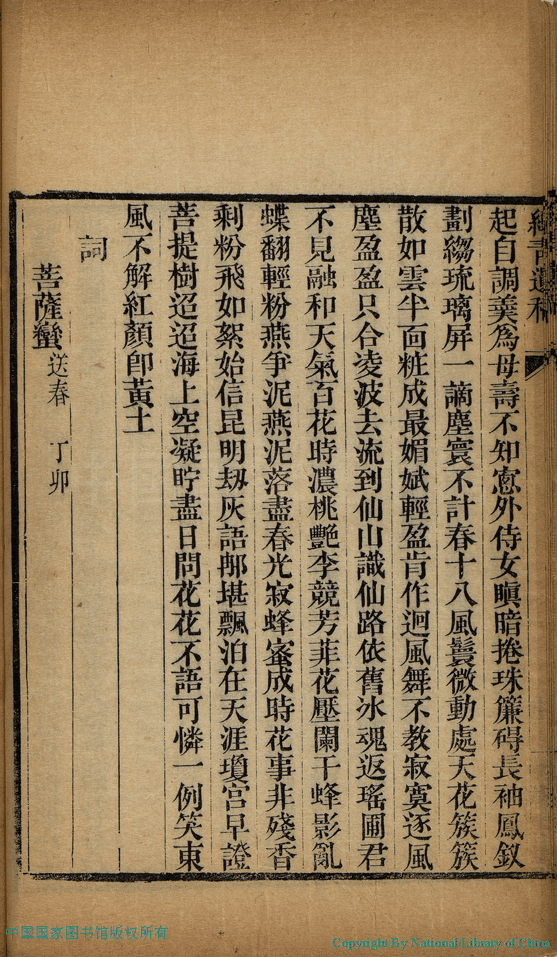 起自調羹爲母壽不知窓外侍女瞋暗捲珠簾碍長袖鳳釵
劃縐琉璃屏一謫塵寰不計春十八風鬟微動處天花簇簇
散如雲半面粧成最媚斌輕盈肯作迴風舞不教寂寞逐風
塵盈盈只合凌波去流到仙山識仙路依舊冰魂返瑤圃君
不見融和天氣百花時濃桃艷李競芳菲花壓闌干蜂影亂
蝶翻輕粉燕爭泥燕泥落盡春光寂蜂蜜成時花事非殘香
剩粉飛如絮始信昆明刼灰語那堪飄泊在天涯瓊宮早證
菩提樹迢迢海上空凝眝盡日問花花不語可憐一例笑東
風不解紅顏卽黃土
詞
菩薩蠻 送春 丁卯
中国国家图书馆版权所有
Copyright By National Library of China